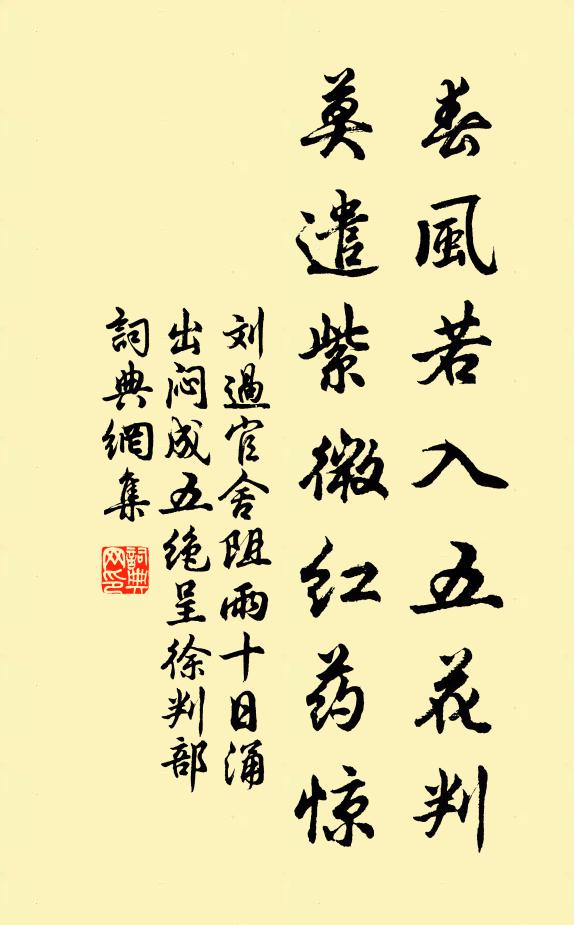 春風若入五花判
莫遣紫微红药惊
刘過官舍阻雨十日涌
出闷成五绝呈徐判部
詞典網集
詞典网印